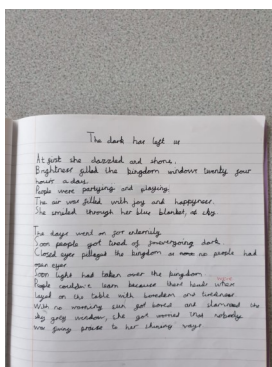 The dark has left us
At first she dazzled and shone.
Brightness filled the kingdom windows twenty four
hours a day.
People were partying and playing.
The air was filled with joy and happyness.
She smiled through her blue blanket, as sky.
The days went on for enternity.
Soon people got tired of
Closed eyes pillaged the kingdom as no people had
open eyes
Soon light had taken over the kingdom.
People couldn't learn because their heads where
layed on the table with boredom and tiredness
With no warning sun got bored and slammed the
sky grey window, she got worried that nobody
was giving praise to her shining rays.